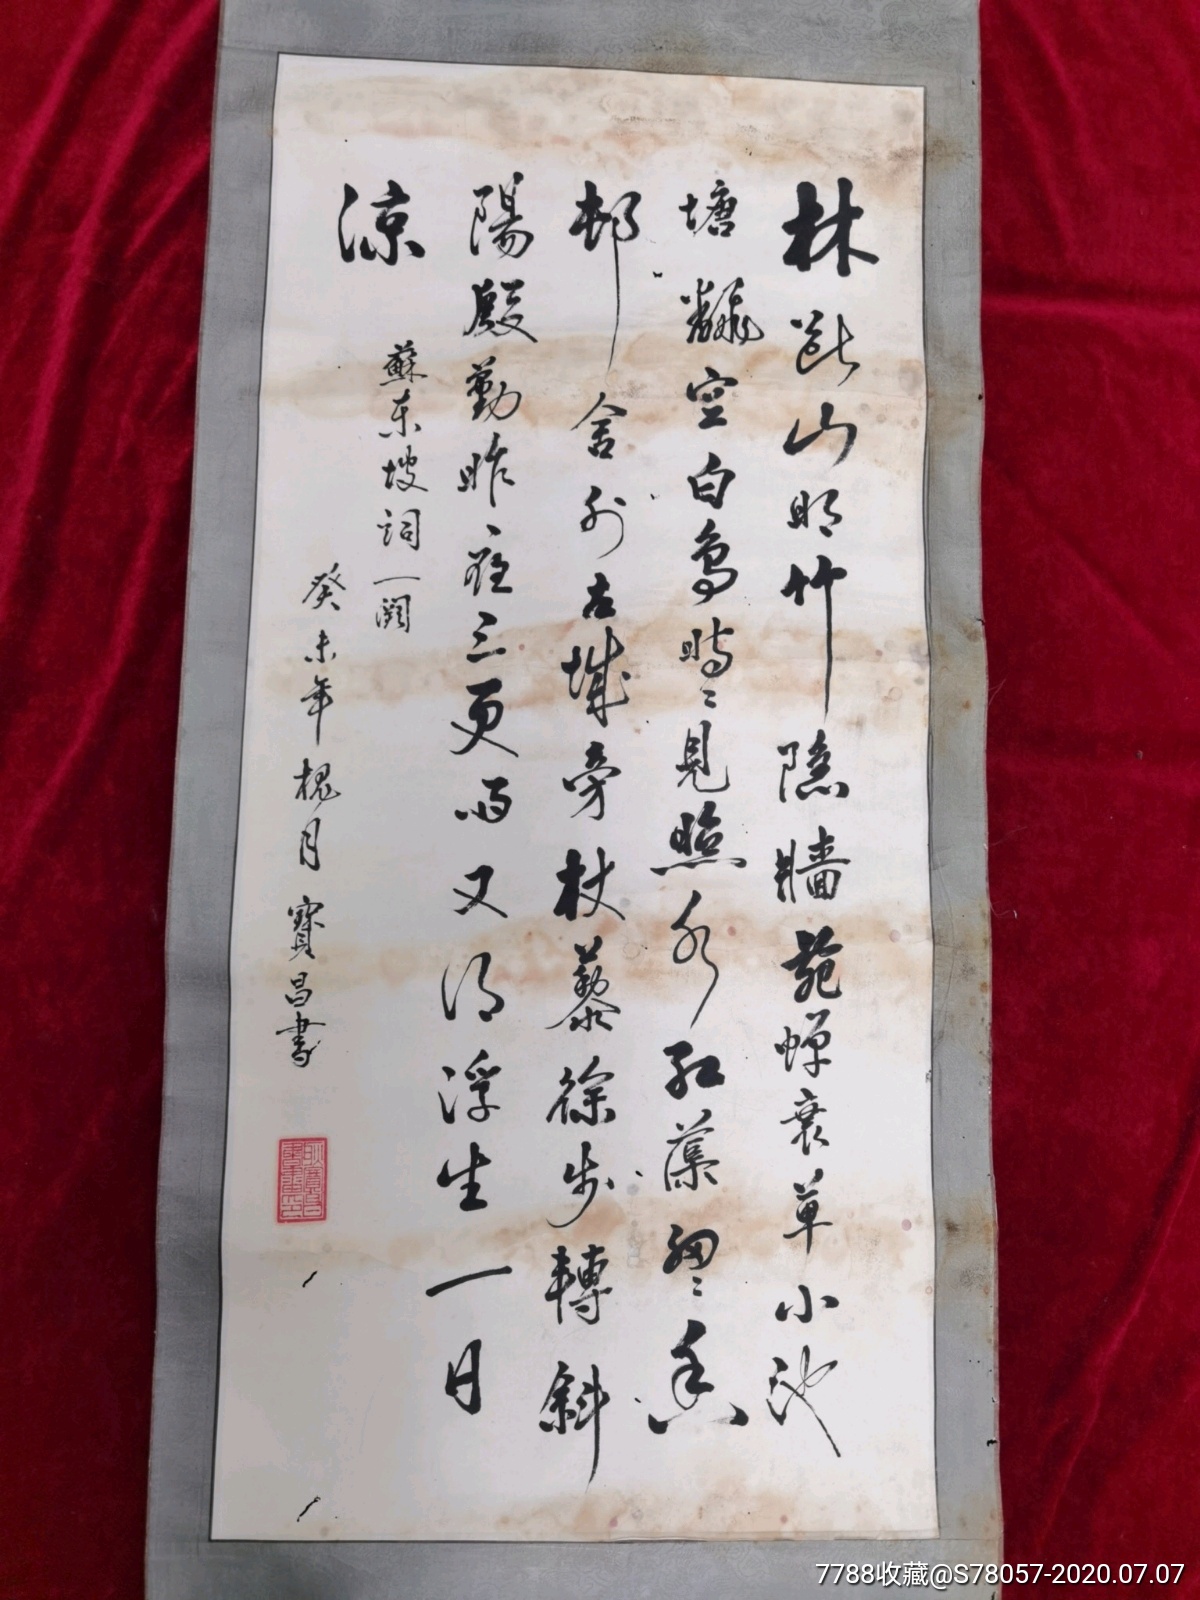 林斷山明竹隱牆亂蟬衰草小池
塘飜空白鳥時〻見照水紅蕖細〻香
邨舍外古城旁杖藜徐步轉斜
陽殷勤昨夜三更雨又得浮生一日
涼
蘇東坡詞一闋
癸未年槐月寶昌書
7788收藏@S78057-2020.07.07